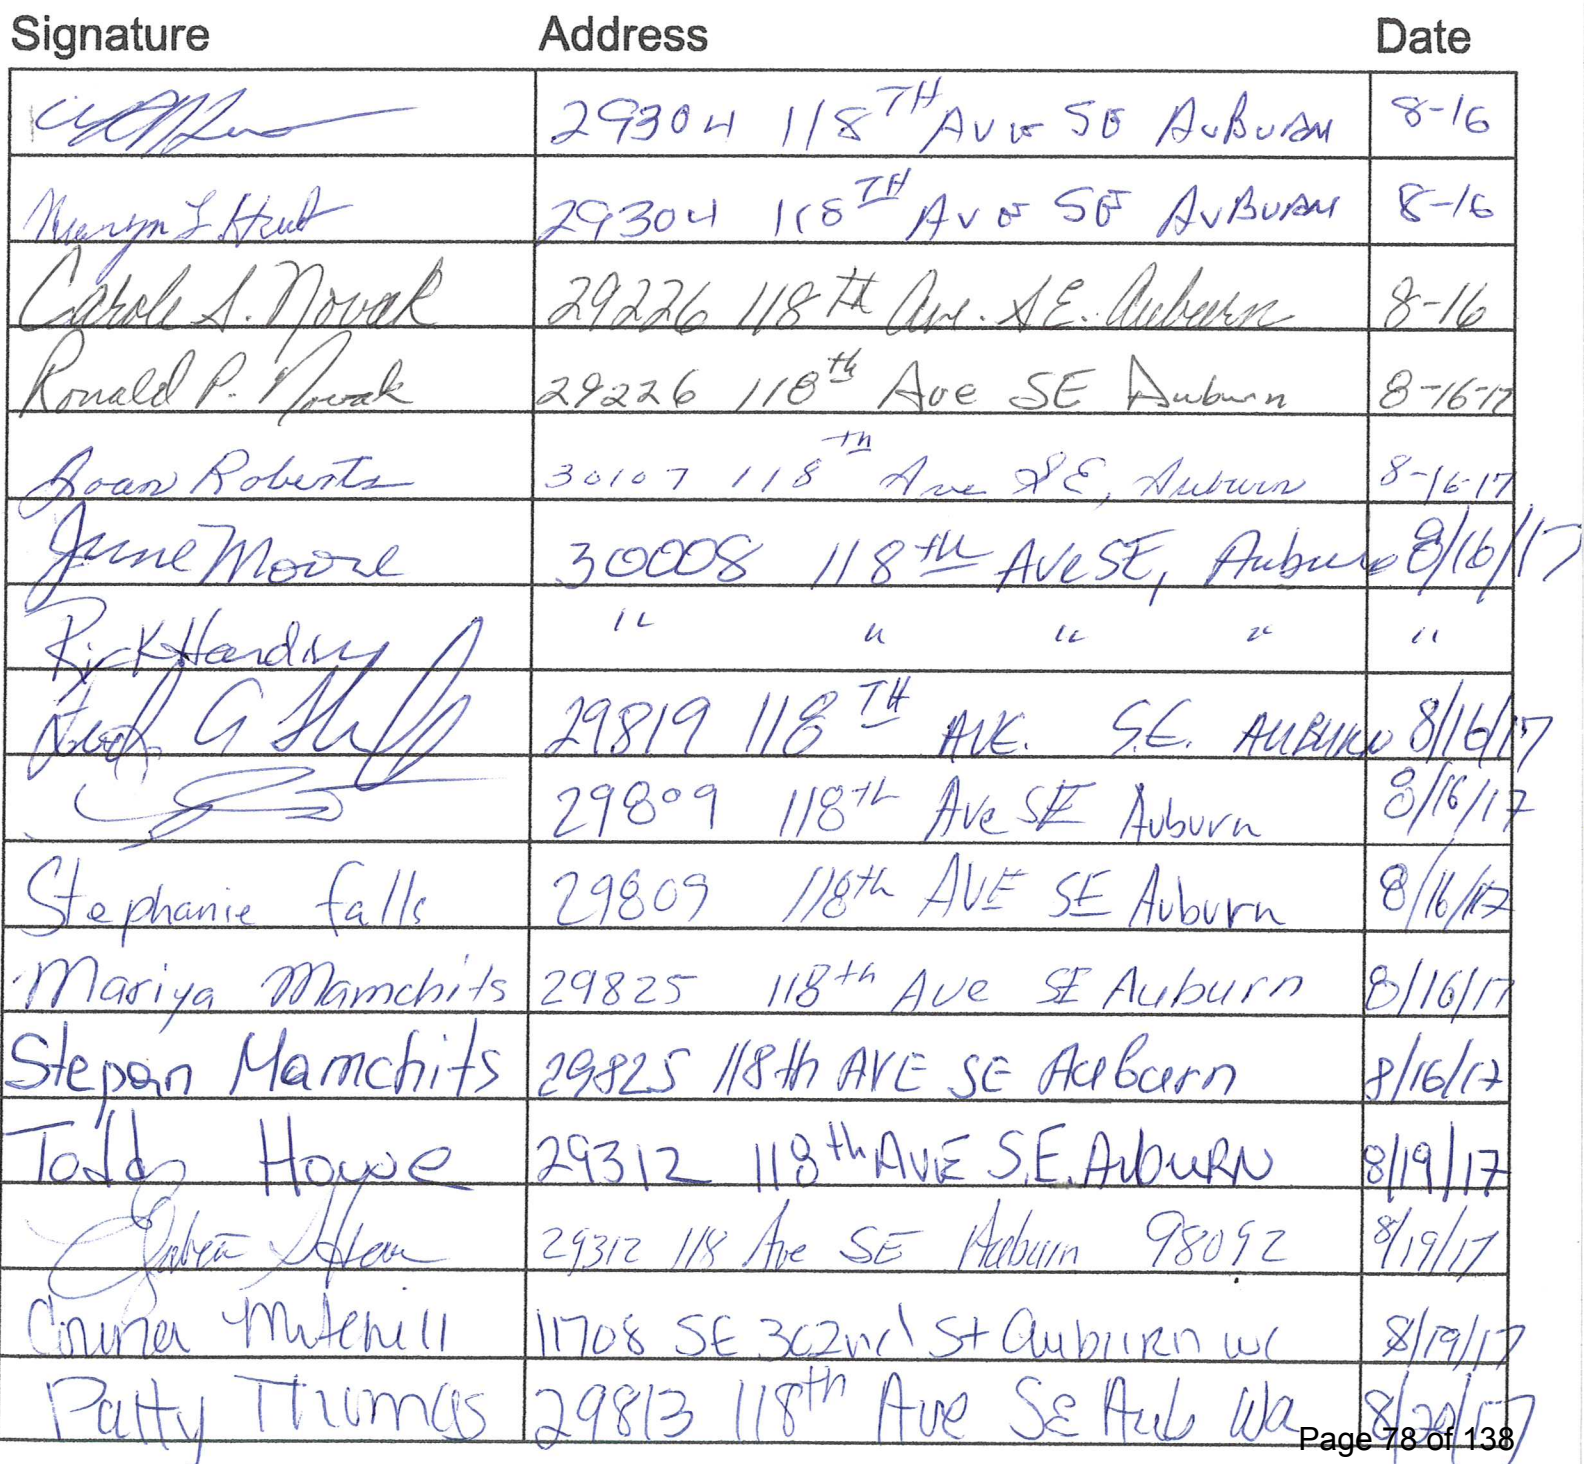 Signature Address Date
29304 118TH AVE SE AUBURN 8-16
L Hunt 29304 118TH AVE SE AUBURN 8-16
Carole S. Novak 29226 118TH Ave. S.E. Auburn 8-16
Ronald P. Novak 29226 118th Ave SE Auburn 8-16-17
Joan Roberts 30107 118th Ave SE, Auburn 8-16-17
June Moore 30008 118th Ave SE, Auburn 8/16/17
Rick Harding " " " " "
G 29819 118TH AVE. S.E. AUBURN 8/16/17
29809 118th Ave SE Auburn 8/16/17
Stephanie Falls 29809 118th AVE SE Auburn 8/16/17
Mariya Mamchits 29825 118th Ave SE Auburn 8/16/17
Stepan Mamchits 29825 118th AVE SE Auburn 8/16/17
Todd Howe 29312 118th AVE S.E. AUbURN 8/19/17
29312 118 Ave SE Auburn 98092 8/19/17
11708 SE 302nd St Auburn 8/19/17
Patty Thomas 29813 118th Ave SE Aub Wa 8/20/17
Page 78 of 138